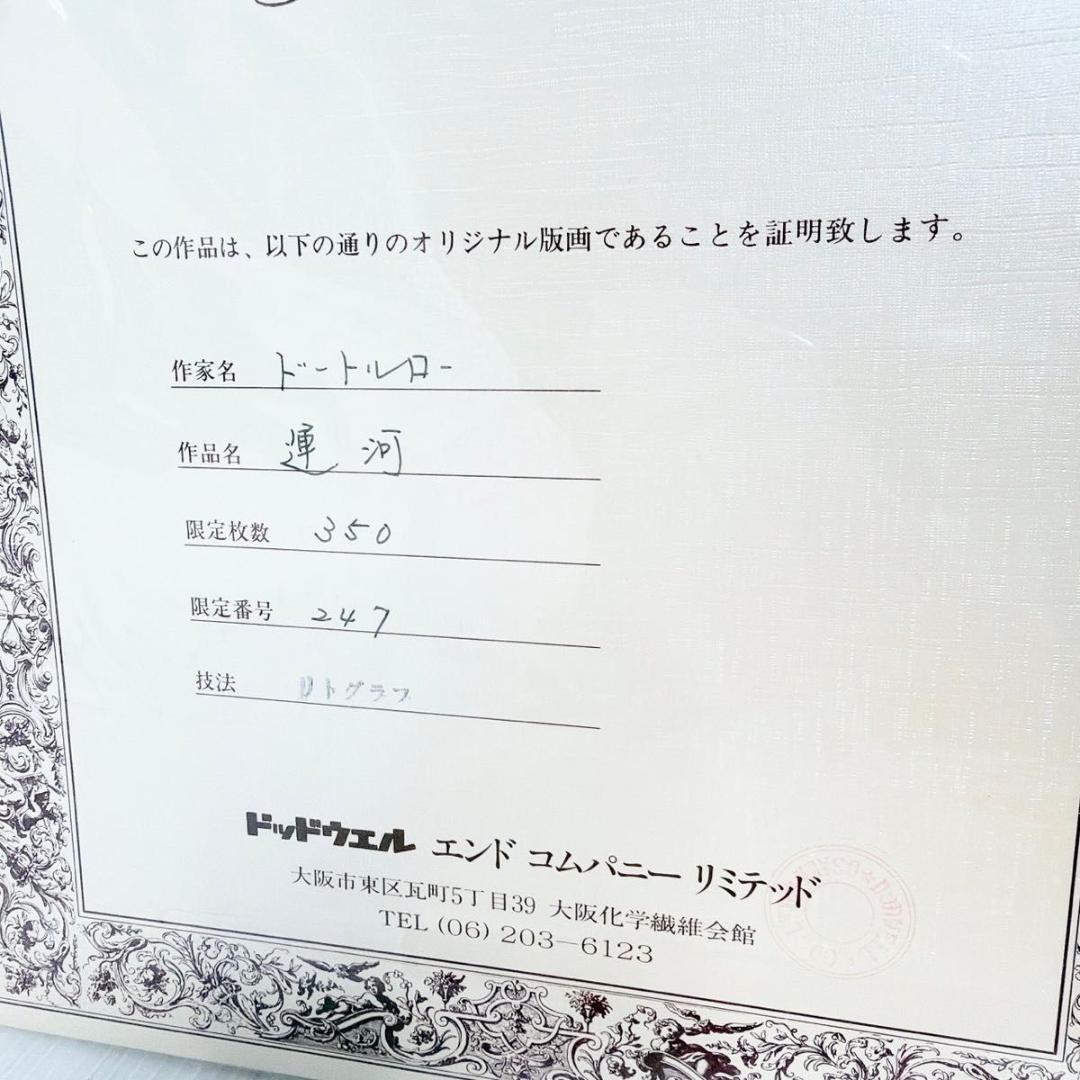 この作品は、以下の通りのオリジナル版画であることを証明致します。
作家名 ドートルロー
作品名 運河
限定枚数 350
限定番号 247
技法 リトグラフ
ドッドウエル エンド コムパニー リミテッド
大阪市東区瓦町5丁目39 大阪化学繊維会館
TEL (06) 203-6123